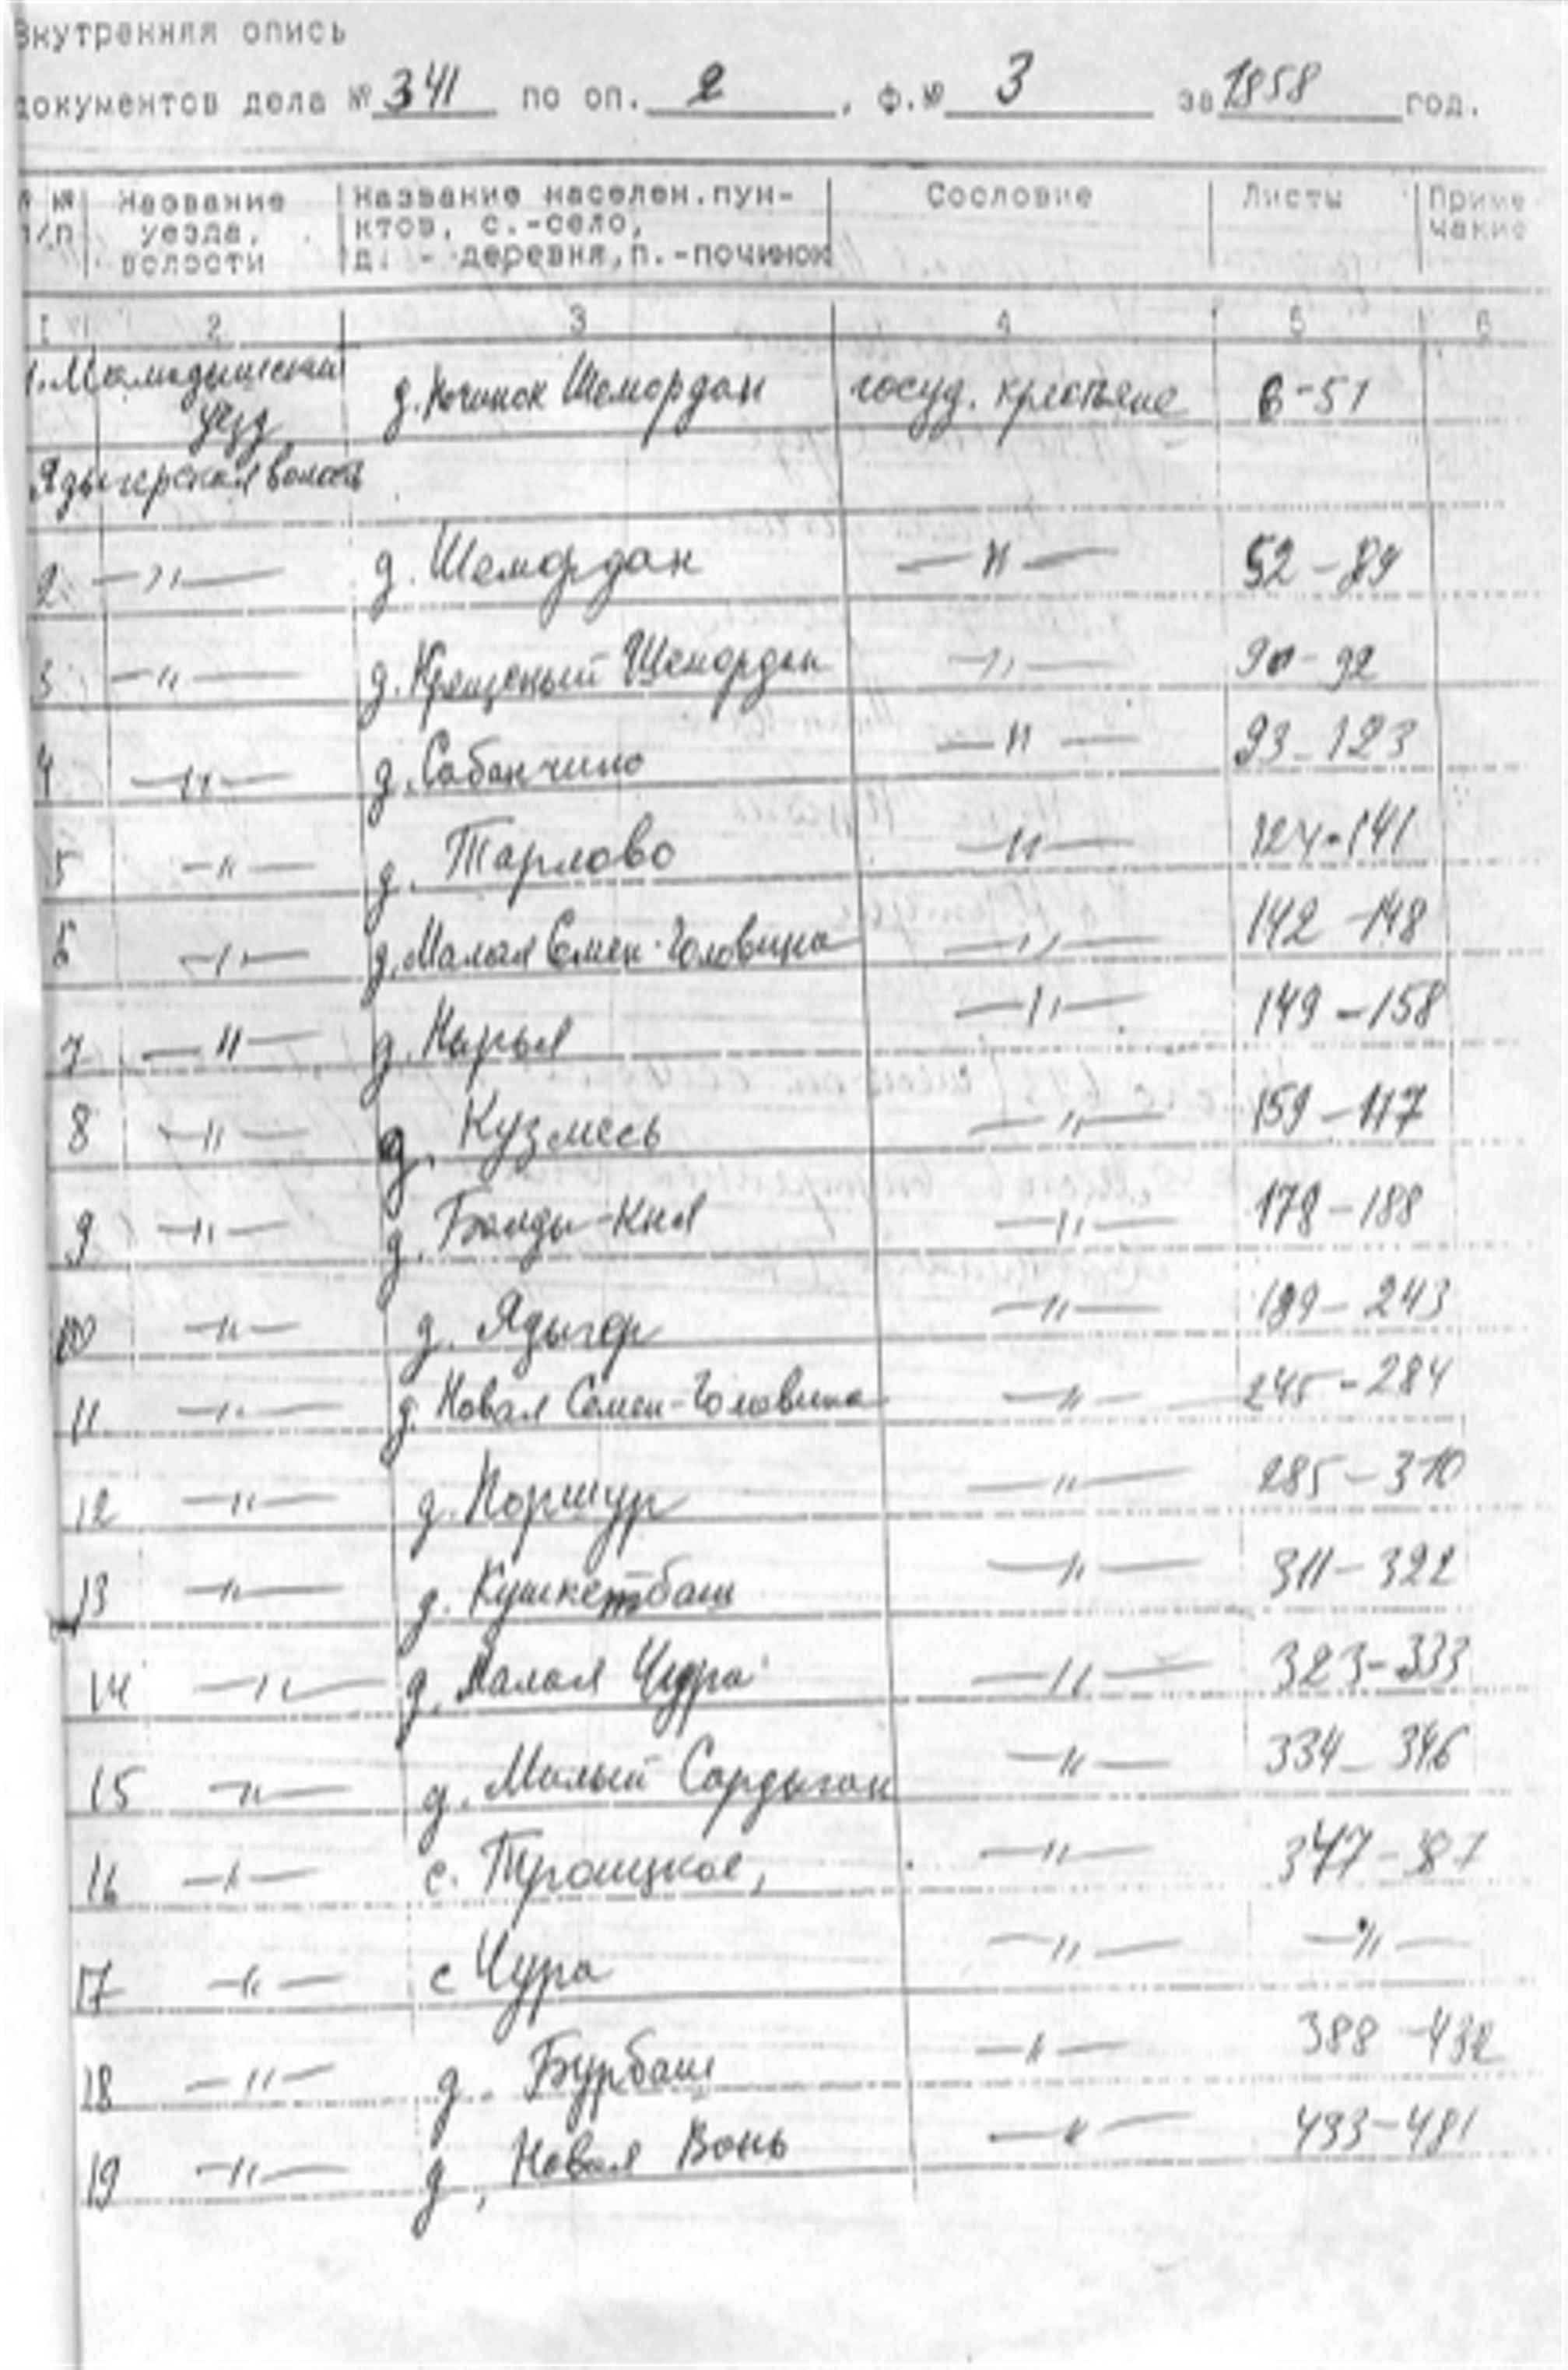 Внутренняя опись
документов дела № 341 по оп. 2, ф.№ 3 за 1858 год.
№ №
п/п
Название
уезда,
волости
Название населен.пун-
ктов, с.-село,
д. - деревня,п.-починок
Сословие
Листы
Приме
чание
1 2 3 4 5 6
1. Мамадышский уезд д. Починок Шемордан госуд. крестьяне 6-51
Ядыгерская волость
2. —"— д. Шемордан —"— 52-89
3 —"— д. Крещеный Шемордан —"— 90-92
4 —"— д. Сабанчино —"— 93-123
5 —"— д. Тарлово —"— 124-141
6 —"— д. Малая Семен-Головина —"— 142-148
7 —"— д. Нырья —"— 149-158
8 —"— д. Кузмесь —"— 159-117
9 —"— д. Балды-Кня —"— 178-188
10 —"— д. Ядыгер —"— 189-243
11 —"— д. Новая Семен-Головина —"— 245-284
12 —"— д. Поршур —"— 285-310
13 —"— д. Кушкетбаш —"— 311-322
14 —"— д. Малая Чура —"— 323-333
15 —"— д. Малый Сардыган —"— 334-346
16 —"— с. Троицкое, —"— 347-387
17 —"— с Чура —"— —"—
18 —"— д. Бурбаш —"— 388-432
19 —"— д, Новая Вонь —"— 433-481